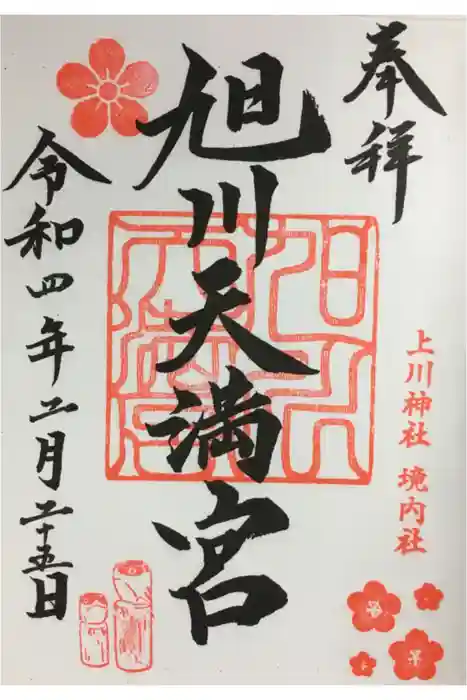 奉拝
上川神社 境内社
旭川天満宮
令和四年二月二十五日